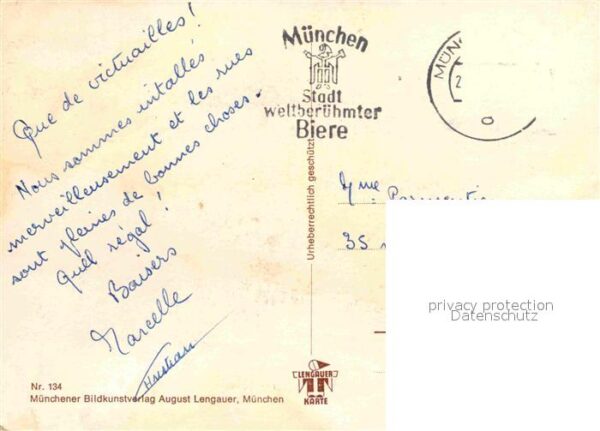 Que de victuailles !
Nous sommes intallés
merveilleusement et les rues
sont pleines de bonnes choses.
Quel régal !
Baisers
Marcelle
Christian
München
Stadt
weltberühmter
Biere
MÜN
2
Urheberrechtlich geschützt
Mme Parmentie
35
privacy protection
Datenschutz
LENGAUER
KARTE
Nr. 134
Münchener Bildkunstverlag August Lengauer, München